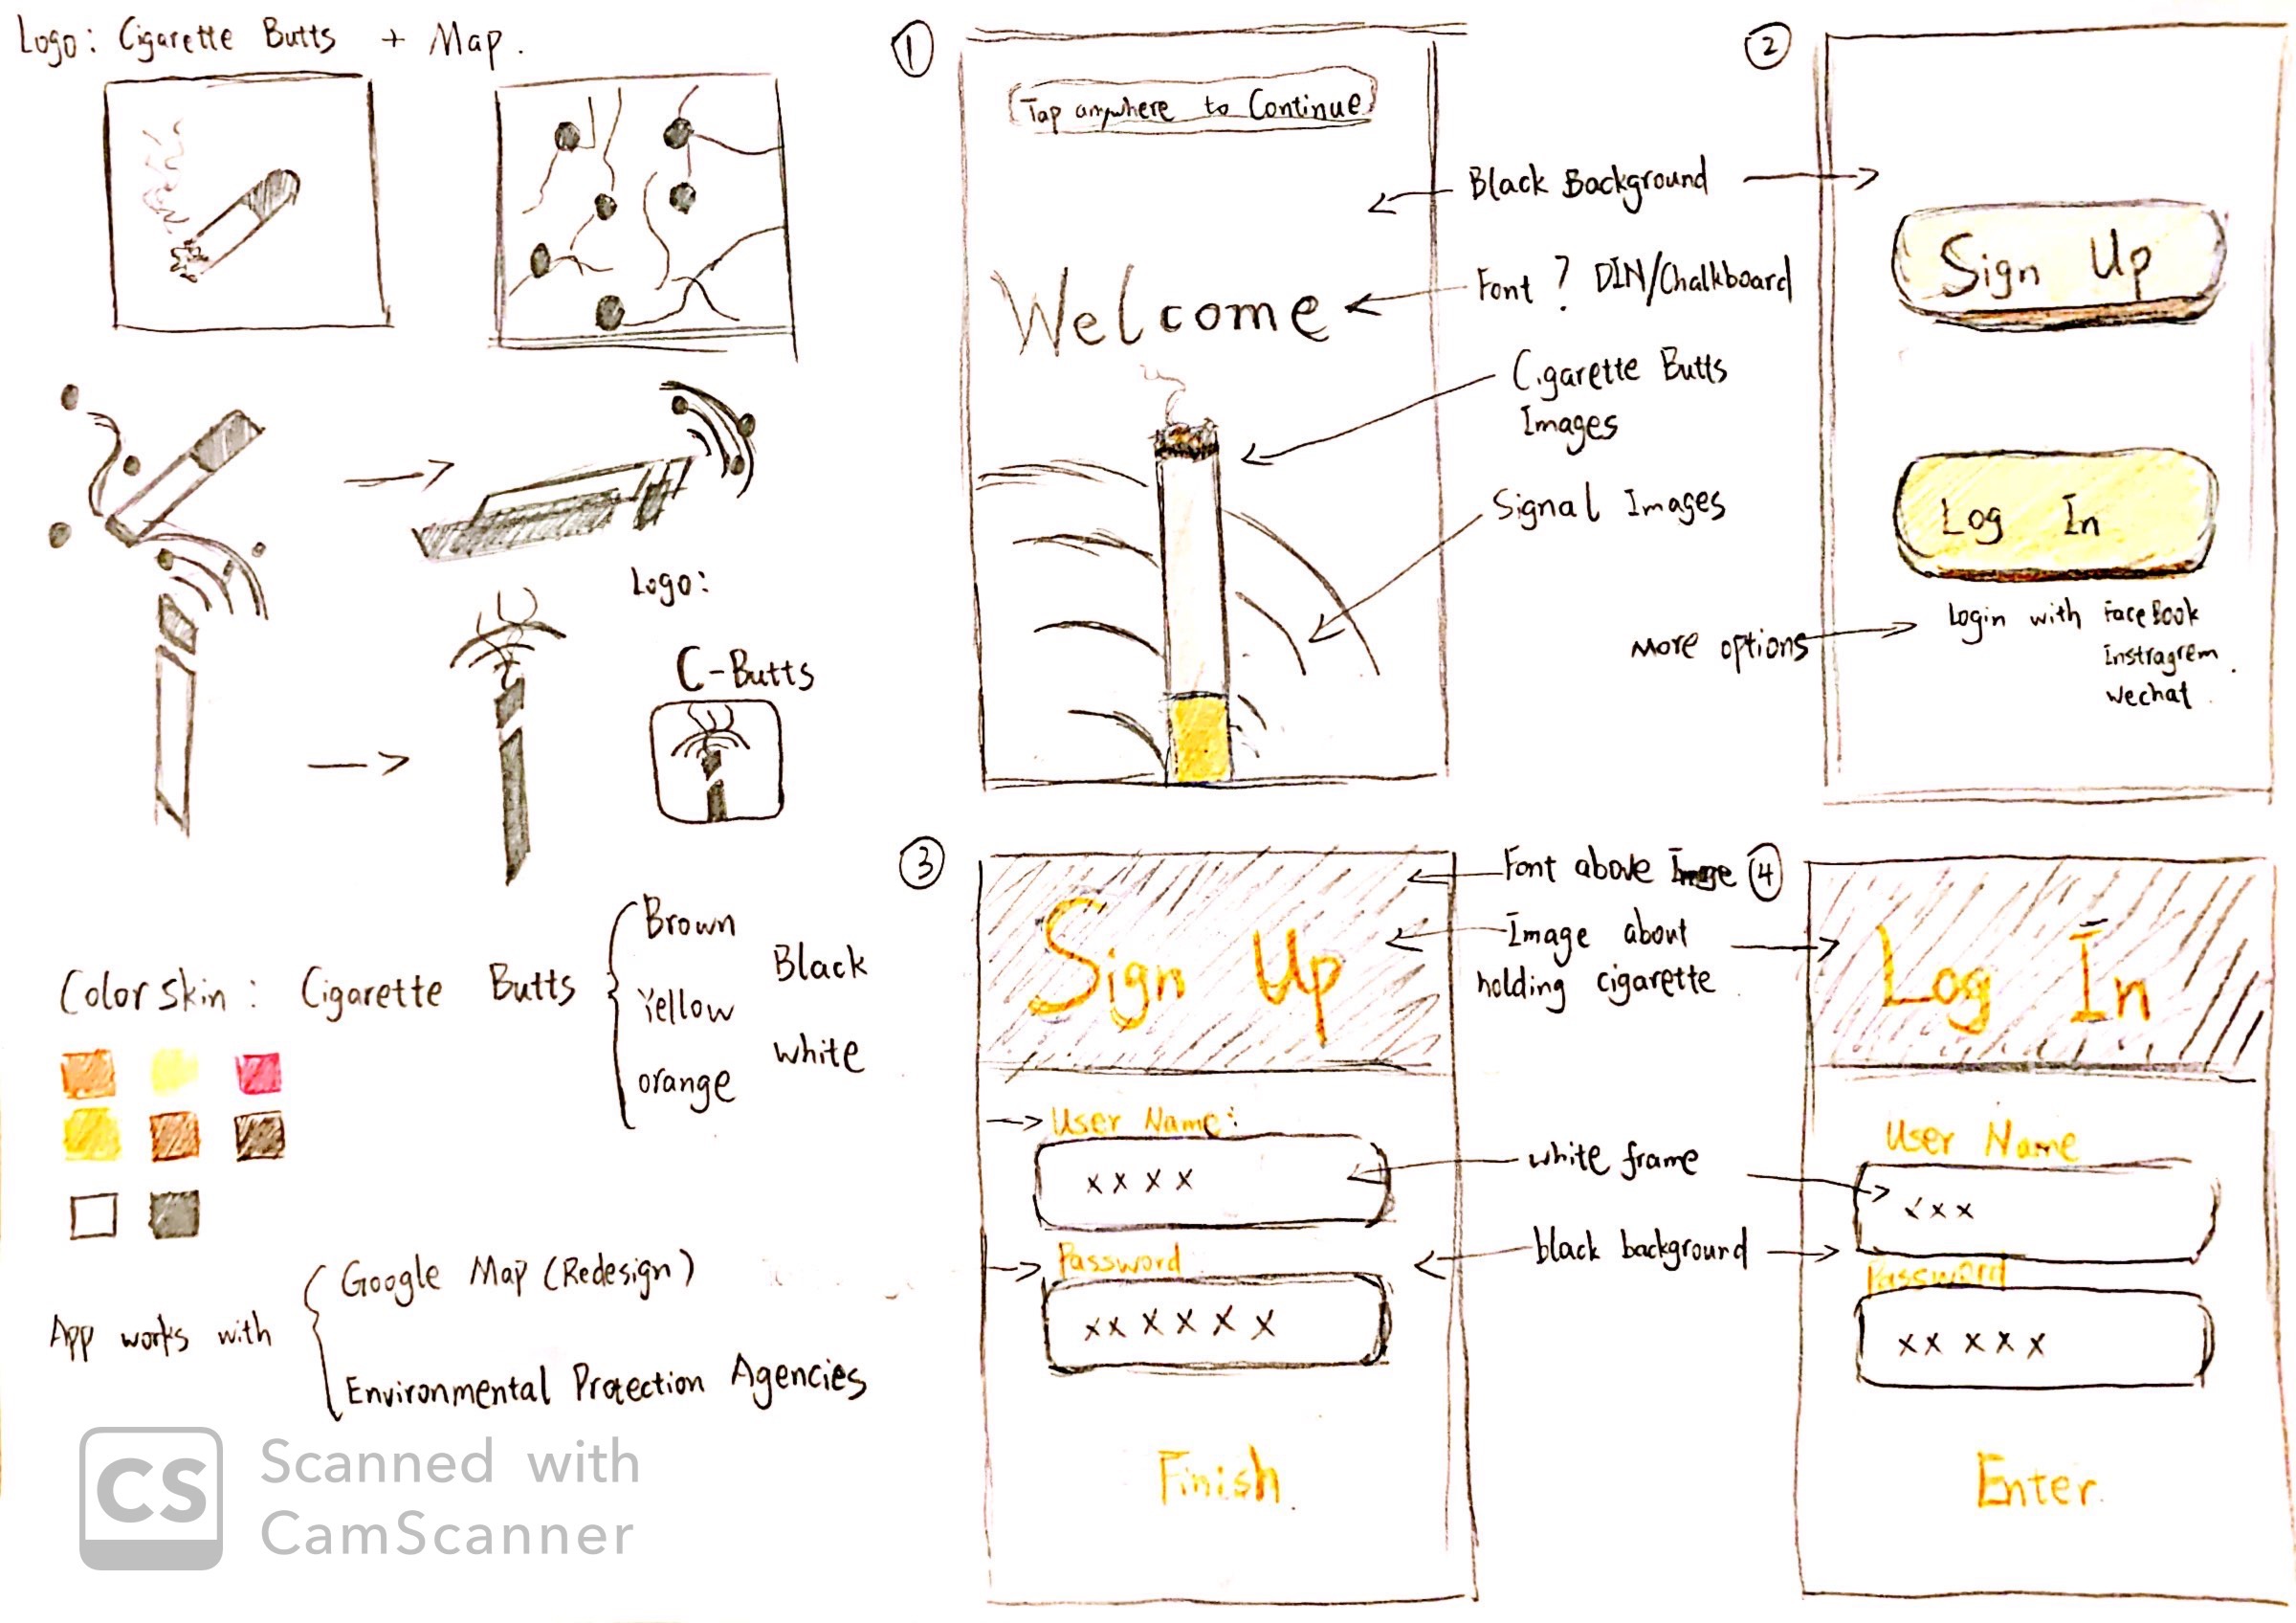 Logo: Cigarette Butts + Map.
Logo:
C-Butts
Color skin: Cigarette Butts
Brown
Yellow
orange
Black
white
App works with
Google Map (Redesign)
Environmental Protection Agencies
CS
Scanned with
CamScanner
①
Tap anywhere to Continue
Welcome
Black Background
Font ? DIN/Chalkboard
Cigarette Butts
Images
Signal Images
②
Sign Up
Log In
More options
Login with FaceBook
Instragrem
Wechat.
③
Sign Up
User Name:
xxxx
Password
xxxxxx
Finish.
Font above Image
Image about
holding cigarette
white frame
black background
④
Log In
User Name
xxx
Password
xxxxx
Enter.